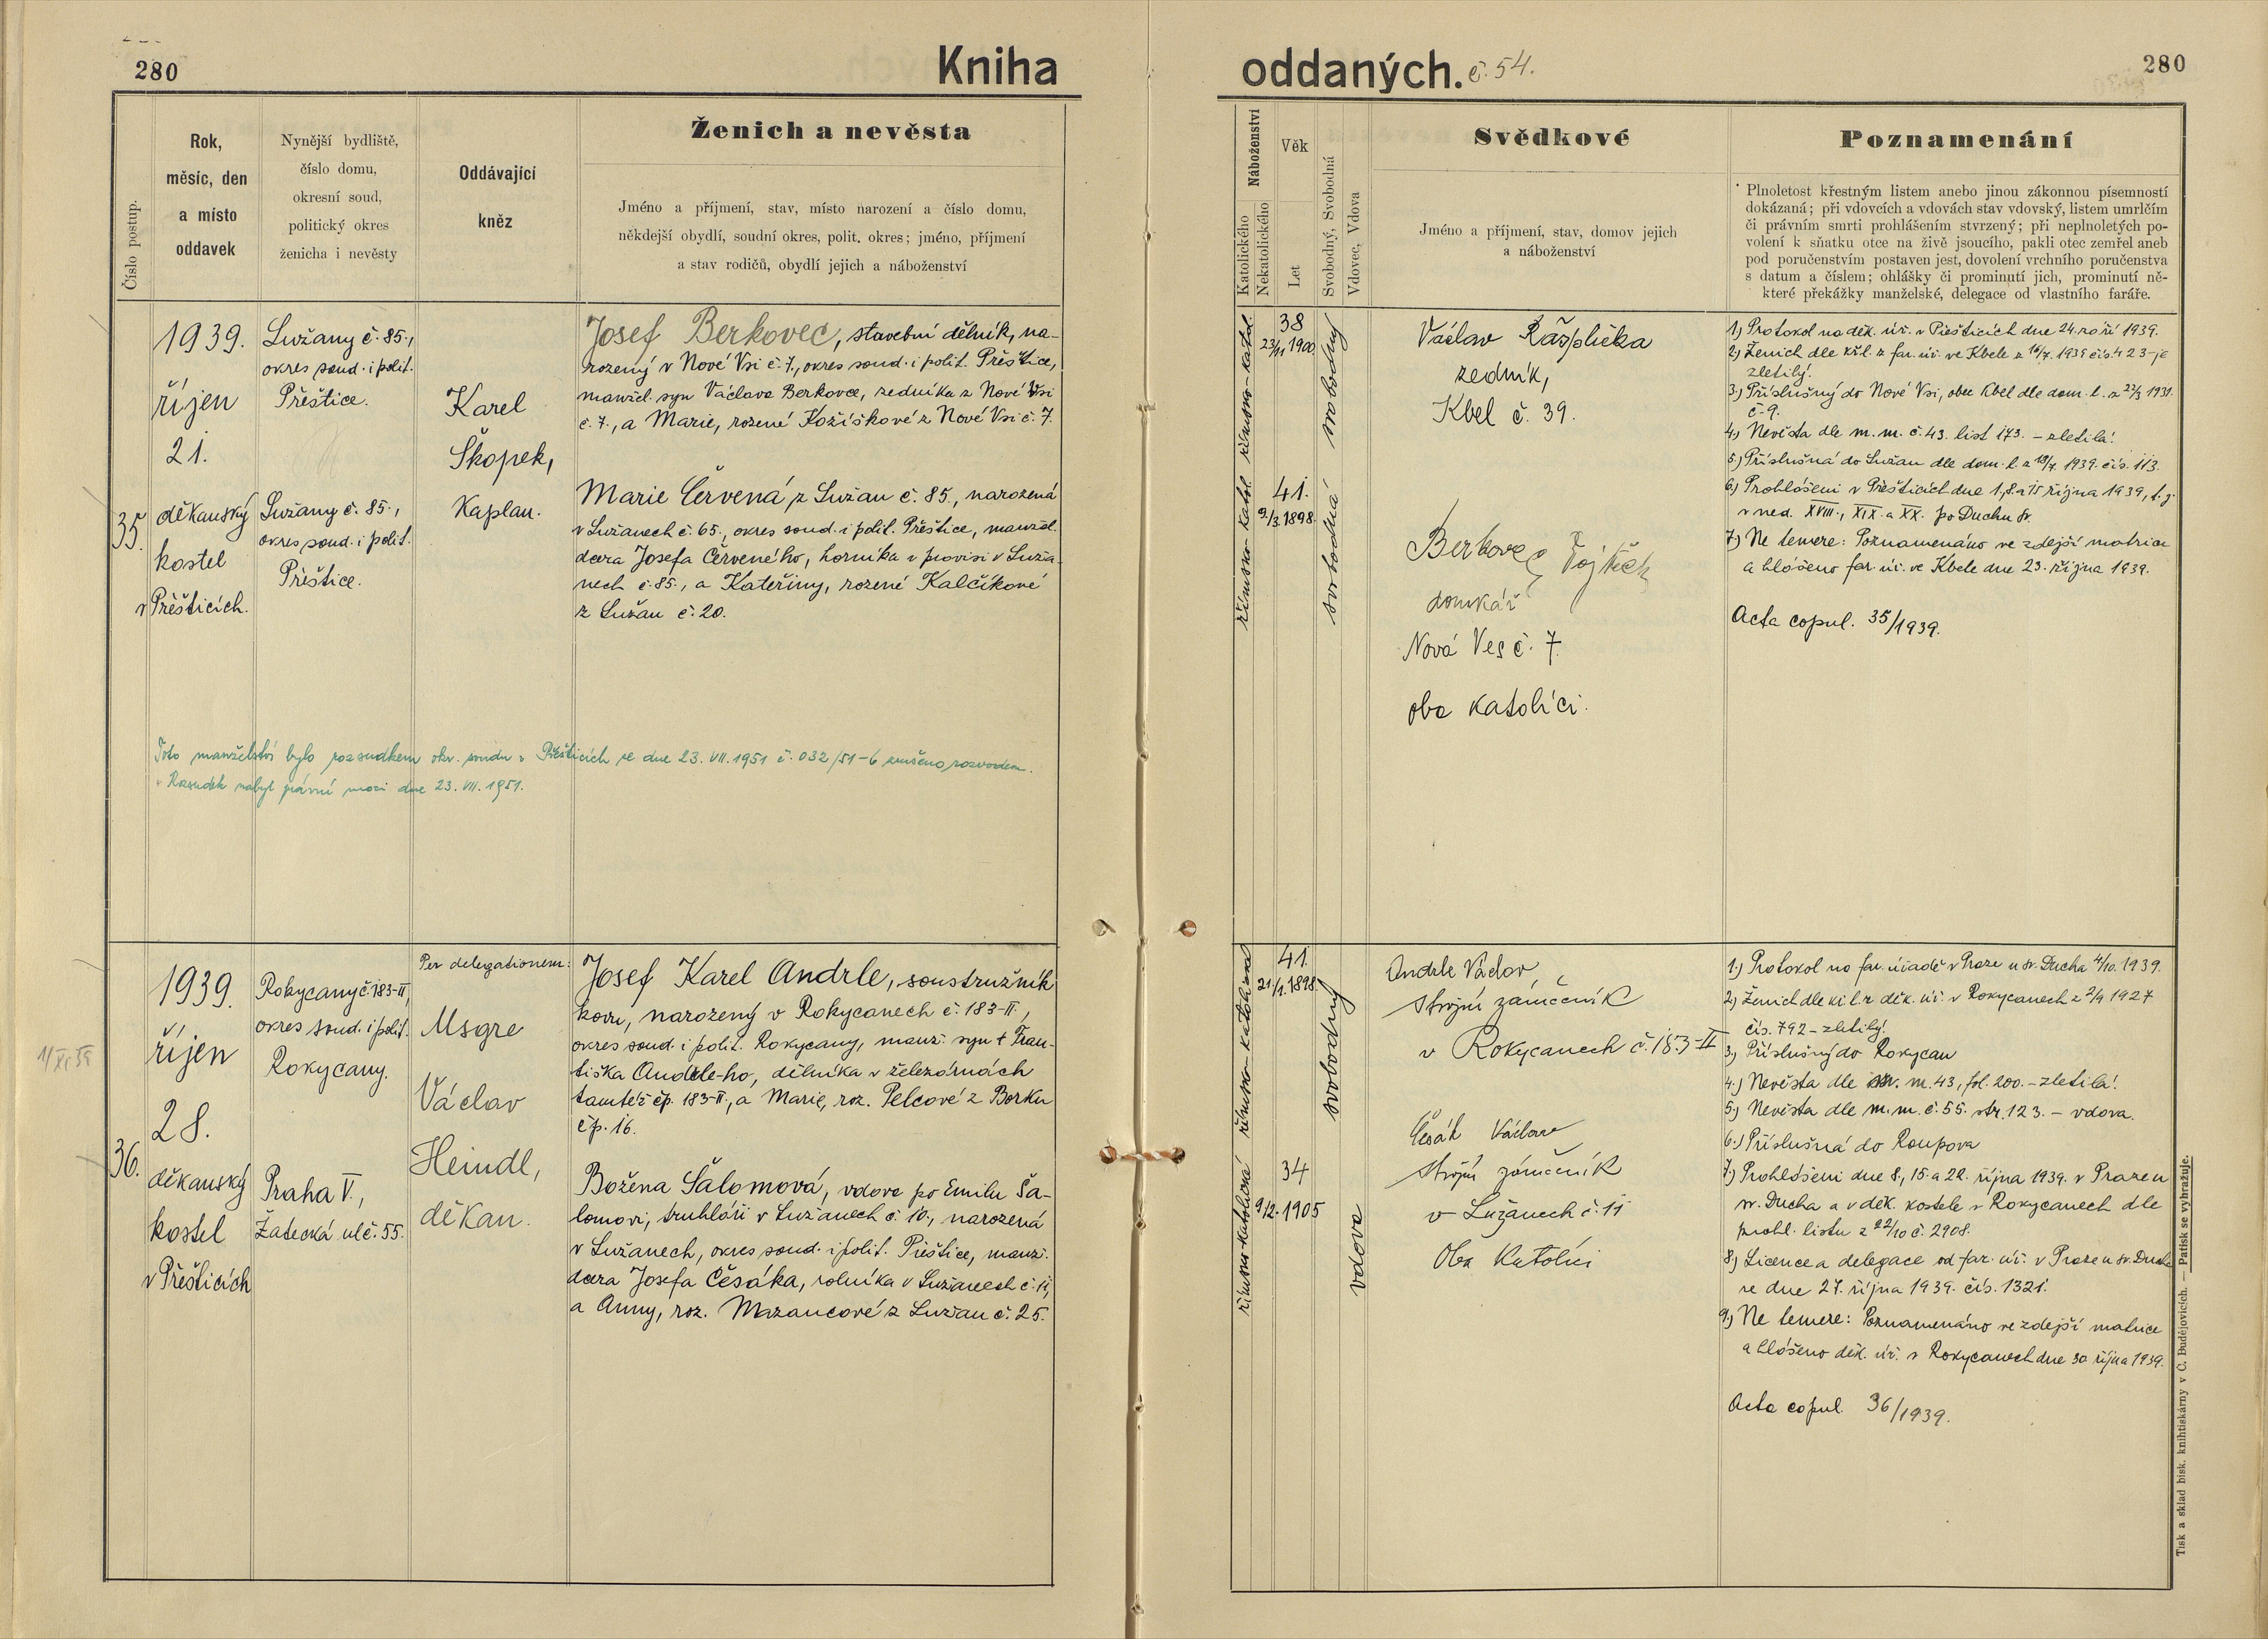 280
Kniha
oddaných. č. 54.
280
Číslo postup.
Rok,
měsíc, den
a místo
oddavek
Nynější bydliště,
číslo domu,
okresní soud,
politický okres
ženicha i nevěsty
Oddávající
kněz
Ženich a nevěsta
Jméno a příjmení, stav, místo narození a číslo domu,
někdejší obydlí, soudní okres, polit. okres; jméno, příjmení
a stav rodičů, obydlí jejich a náboženství
Náboženství
Katolického
Nekatolického
Věk
Let
Svobodný, Svobodná
Vdovec, Vdova
Svědkové
Jméno a příjmení, stav, domov jejich
a náboženství
Poznamenání
Plnoletost křestným listem anebo jinou zákonnou písemností
dokázaná; při vdovcích a vdovách stav vdovský, listem umrlčím
či právním smrti prohlášením stvrzený; při neplnoletých po-
volení k sňatku otce na živě jsoucího, pakli otec zemřel aneb
pod poručenstvím postaven jest, dovolení vrchního poručenstva
s datum a číslem; ohlášky či prominutí jich, prominutí ně-
které překážky manželské, delegace od vlastního faráře.
35.
1939.
říjen
21.
děkanský
kostel
v Přešticích.
Lužany č. 85.,
okres soud. i polit.
Přeštice.
Lužany č. 85.,
okres soud. i polit.
Přeštice.
Karel
Škopek,
Kaplan.
Josef Berkovec, stavební dělník, na-
rozený v Nové Vsi č. 7., okres soud. i polit. Přeštice,
manžel. syn Václava Berkovce, zedníka z Nové Vsi
č. 7., a Marie, rozené Kožíškové z Nové Vsi č. 7.
Marie Červená z Lužan č. 85., narozená
v Lužanech č. 65., okres soud. i polit. Přeštice, manžel.
dcera Josefa Červeného, horníka v provisi v Luža-
nech č. 85., a Kateřiny, rozené Kalčíkové
z Lužan č. 20.
Toto manželství bylo rozsudkem okr. soudu v Přešticích ze dne 23. VII. 1951 č. 032/51-6 zrušeno rozvodem.
Rozsudek nabyl právní moci dne 23. VII. 1951.
římsko-katol.
římsko-katol.
38
23/11 1900
41.
9/3. 1898.
svobodný
svobodná
Václav Rašplička
zedník,
Kbel č. 39.
Berkovec Vojtěch
domkář
Nová Ves č. 7
oba katolíci.
1) Protokol na děk. úř. v Přešticích dne 24. září 1939.
2) Ženich dle kř. l. z far. úř. ve Kbele z 16/7. 1939 čís. 423 - je
zletilý.
3.) Příslušný do Nové Vsi, obec Kbel dle dom. l. z 22/3 1931.
č. 9.
4.) Nevěsta dle m. m. č. 43. list 173. - zletilá.
5.) Příslušná do Lužan dle dom. l. z 18/7. 1939. čís. 113.
6.) Prohlášeni v Přešticích dne 1., 8. a 15 října 1939, t. j.
v ned. XVIII., XIX. a XX. po Duchu sv.
7.) Ne temere: Poznamenáno ve zdejší matrice
a hlášeno far. úř. ve Kbele dne 23. října 1939.
Acta copul. 35/1939.
36.
1939.
říjen
28.
děkanský
kostel
v Přešticích
Rokycany č. 183-II,
okres soud. i polit.
Rokycany.
Praha V.,
Žatecká ul č. 55.
Per delegationem:
Msgre
Václav
Heindl,
děkan.
Josef Karel Andrle, soustružník
kovu, narozený v Rokycanech č. 183-II.,
okres soud. i polit. Rokycany, manž. syn † Fran-
tiška Andrle-ho, dělníka v železárnách
tamtéž čp. 183-II., a Marie, roz. Pelcové z Borku
čp. 16.
Božena Šalomová, vdova po Emilu Ša-
lomovi, truhláři v Lužanech č. 10., narozená
v Lužanech, okres soud. i polit. Přeštice, manž.
dcera Josefa Česáka, rolníka v Lužanech č. 11,
a Anny, roz. Mazancové z Lužan č. 25.
1/XI 39
římsko-katolická
římsko-katolická
41
21/1. 1898.
34
9/2. 1905
svobodný
vdova
Andrle Václav
strojní zámečník
v Rokycanech č. 183-II
Česák Václav
strojní zámečník
v Lužanech č. 11
Oba Katolíci
1.) Protokol na far. úřadě v Praze u sv. Ducha 4/10. 1939.
2.) Ženich dle kř. l. z děk. úř. v Rokycanech z 2/9 1927
čís. 792 - zletilý.
3.) Příslušný do Rokycan
4.) Nevěsta dle m. m. 43, fol. 200. - zletilá.
5.) Nevěsta dle m. m. č. 55. str. 123. - vdova.
6.) Příslušná do Roupova
7.) Prohlášeni dne 8., 15. a 22. října 1939. v Praze u
sv. Ducha a v děk. kostele v Rokycanech dle
prohl. listu z 22/10 č. 2908.
8.) Licence a delegace od far. úř. v Praze u sv. Ducha
ze dne 27. října 1939. čís. 1321.
9.) Ne temere: Poznamenáno ve zdejší matrice
a hlášeno děk. úř. v Rokycanech dne 30 října 1939.
Acta copul. 36/1939.
Tisk a sklad bisk. knihtiskárny v Č. Budějovicích. — Patisk se vyhražuje.